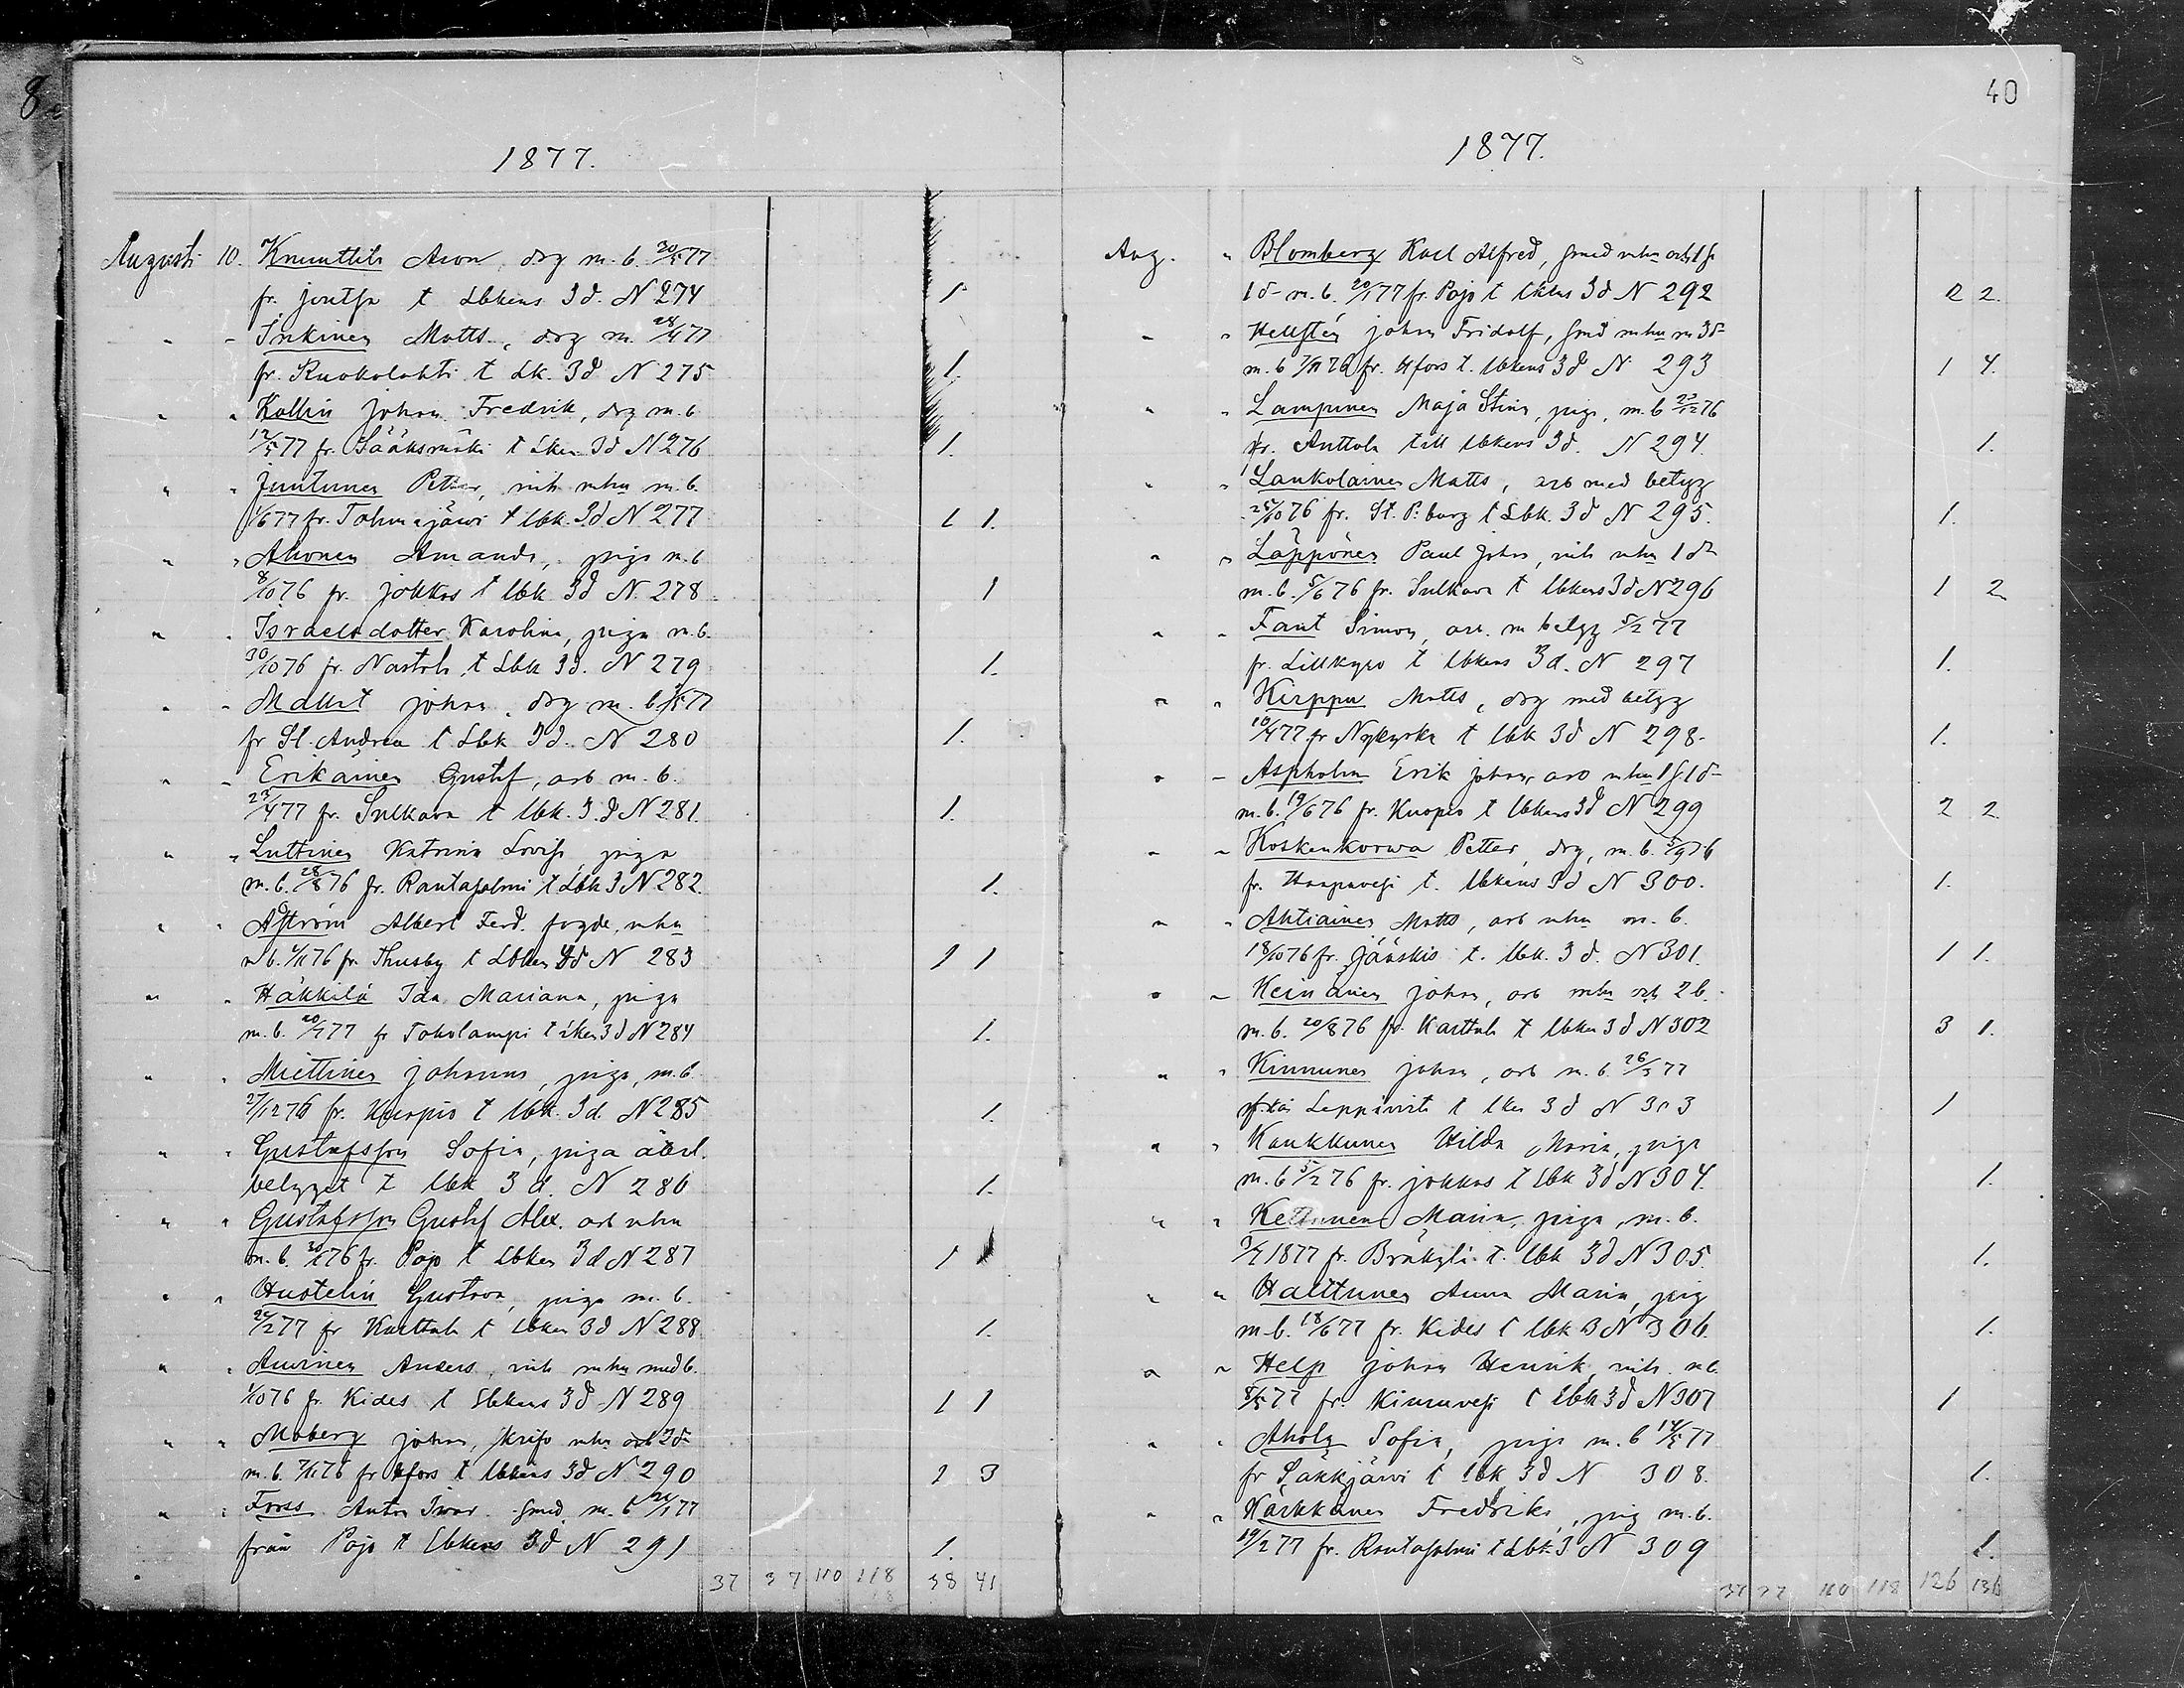 8
1877.
Augusti 10. Knuuttila Aron, drg m. b. 30/5 77
fr. Joutsa t Lbkens 3 d. N 274 1
" " Inkinen Matts, drg m. 28/4 77
fr. Ruokolahti t Lk. 3d N 275 1.
" " Kollin Johan Fredrik, drg m. b
12/5 77 fr. Sääksmäki t Lken 3d N 276 1.
" " Juntunen Petter, inh mhu m. b.
1/6 77 fr. Tohmajärvi t lbk. 3d N 277 1 1.
" " Ahonen Amanda, piga m. b
8/10 76 fr. Jokkas t lbk 3d N. 278 1
" " Israelsdotter Karolina, piga m. b.
30/10 76 fr. Nastola t Lbk 3d. N 279 1.
" " Mallat Johan, drg m. b 77
fr St. Andrea t Lbk 3 d. N 280 1.
" " Erikäinen Gustaf, arb m. b.
23/4 77 fr. Sulkava t lbk. 3.d N 281. 1.
" " Luttinen Katrina Lovisa, piga
m. b. 28/8 76 fr. Rantasalmi t Lbk 3 N 282. 1.
" " Åström Albert Ferd. fogde, mhu
m b. 4/11 76 fr. Thusby t Lbken 3d N 283 1 1
" " Häkkilä Ida Mariana, piga
m. b. 20/7 77 fr Toholampi t Lken 3d N 284 1.
" " Miettinen Johanna, piga, m. b
27/12 76 fr. Kuopio t lbk. 3d. N 285 1.
" " Gustafsson Sofia, piga återl.
betyget t lbk 3 d. N 286 1.
" " Gustafsson Gustaf Alex. arb mhu
m. b. 76 fr. Pojo t Lbken 3d N 287 1
" " Hustelin Gustava, piga m. b.
24/2 77 fr Karttula t Lbken 3d N 288. 1.
" " Auvinen Anders, inh mhu med b.
1/10 76 fr. Kides t Lbkens 3d N 289 1 1
" " Moberg Johan, skrifv mhu och 2 d
m. b. 7/11 76 fr Hfors t lbkens 3d N 290 1 3
" " Fross Anton Ivar smed, m. b 77
från Pojo t Lbkens 3d N 291 1.
37 37 110 118 38 41
40
1877.
Aug. " Blomberg Karl Alfred, smed mhu och 1 s
1 d m. b. 20/1 77 fr. Pojo t lbkens 3d N 292 2 2.
" " Hellstén Johan Fridolf, smed mhu m 3 d
m. b 7/11 76 fr. Hfors t. lbkens 3d N 293 1 4.
" " Lampinen Maja Stina, piga, m. b 23/12 76
fr. Anttola till lbkens 3d. N 294. 1.
" " Laukolainen Matts, arb med betyg
25/10 76 fr. St. P:burg t Lbk. 3d N 295. 1.
" " Läppönen Paul Johan, inh mhu 1 d
m. b. 5/6 76 fr. Sulkava t lbkens 3d N 296 1 2
" " Fant Simon, arb. m betyg 5/2 77
fr. Lillkyro t lbkens 3 d. N 297 1.
" " Kirppu Matts, drg med betyg
10/4 77 fr Nykyrka t lbk 3d N 298. 1.
" " Aspholm Erik Johan, arb mhu 1 s 1 d
m. b. 19/6 76 fr. Kuopio t lbkens 3d N 299 2 2
" " Koskenkorwa Petter, drg, m. b. 5/9 76
fr. Haapavesi t. lbkens 3d N 300. 1.
" " Ahtiainen Matts, arb mhu m. b.
18/10 76 fr. Jääskis t. lbk. 3 d. N 301. 1 1.
" " Keinänen Johan, arb mhu och 2 b.
m. b. 20/8 76 fr. Karttula t lbken 3 d N 302 3 1.
" " Kinnunen Johan, arb m. b. 26/3 77
från Leppävirta t lken 3 d N 303 1
" " Kaukkunen Hilda Maria, piga
m. b 5/2 76 fr. Jokkas t Lbk 3d N 304. 1.
" " Kettunen Maria, piga, m. b.
1877 fr. Bräkylä t. lbk 3d N 305. 1.
" " Halttunen Anna Maria, pig
m. b. 18/6 77 fr. Kides t lbk 3 N 306. 1.
" " Help Johan Henrik, inh. m b.
8/5 77 fr. Kiuruvesi t Lbk 3d N 307 1
" " Ahola Sofia, piga m. b 14/5 77
fr Säkkjärvi t lbk 3d N 308. 1.
" " Kärkkäinen Fredrika, pig m. b.
19/2 77 fr. Rantasalmi t Lbk. 3 N 309 1.
37 37 110 118 126 136